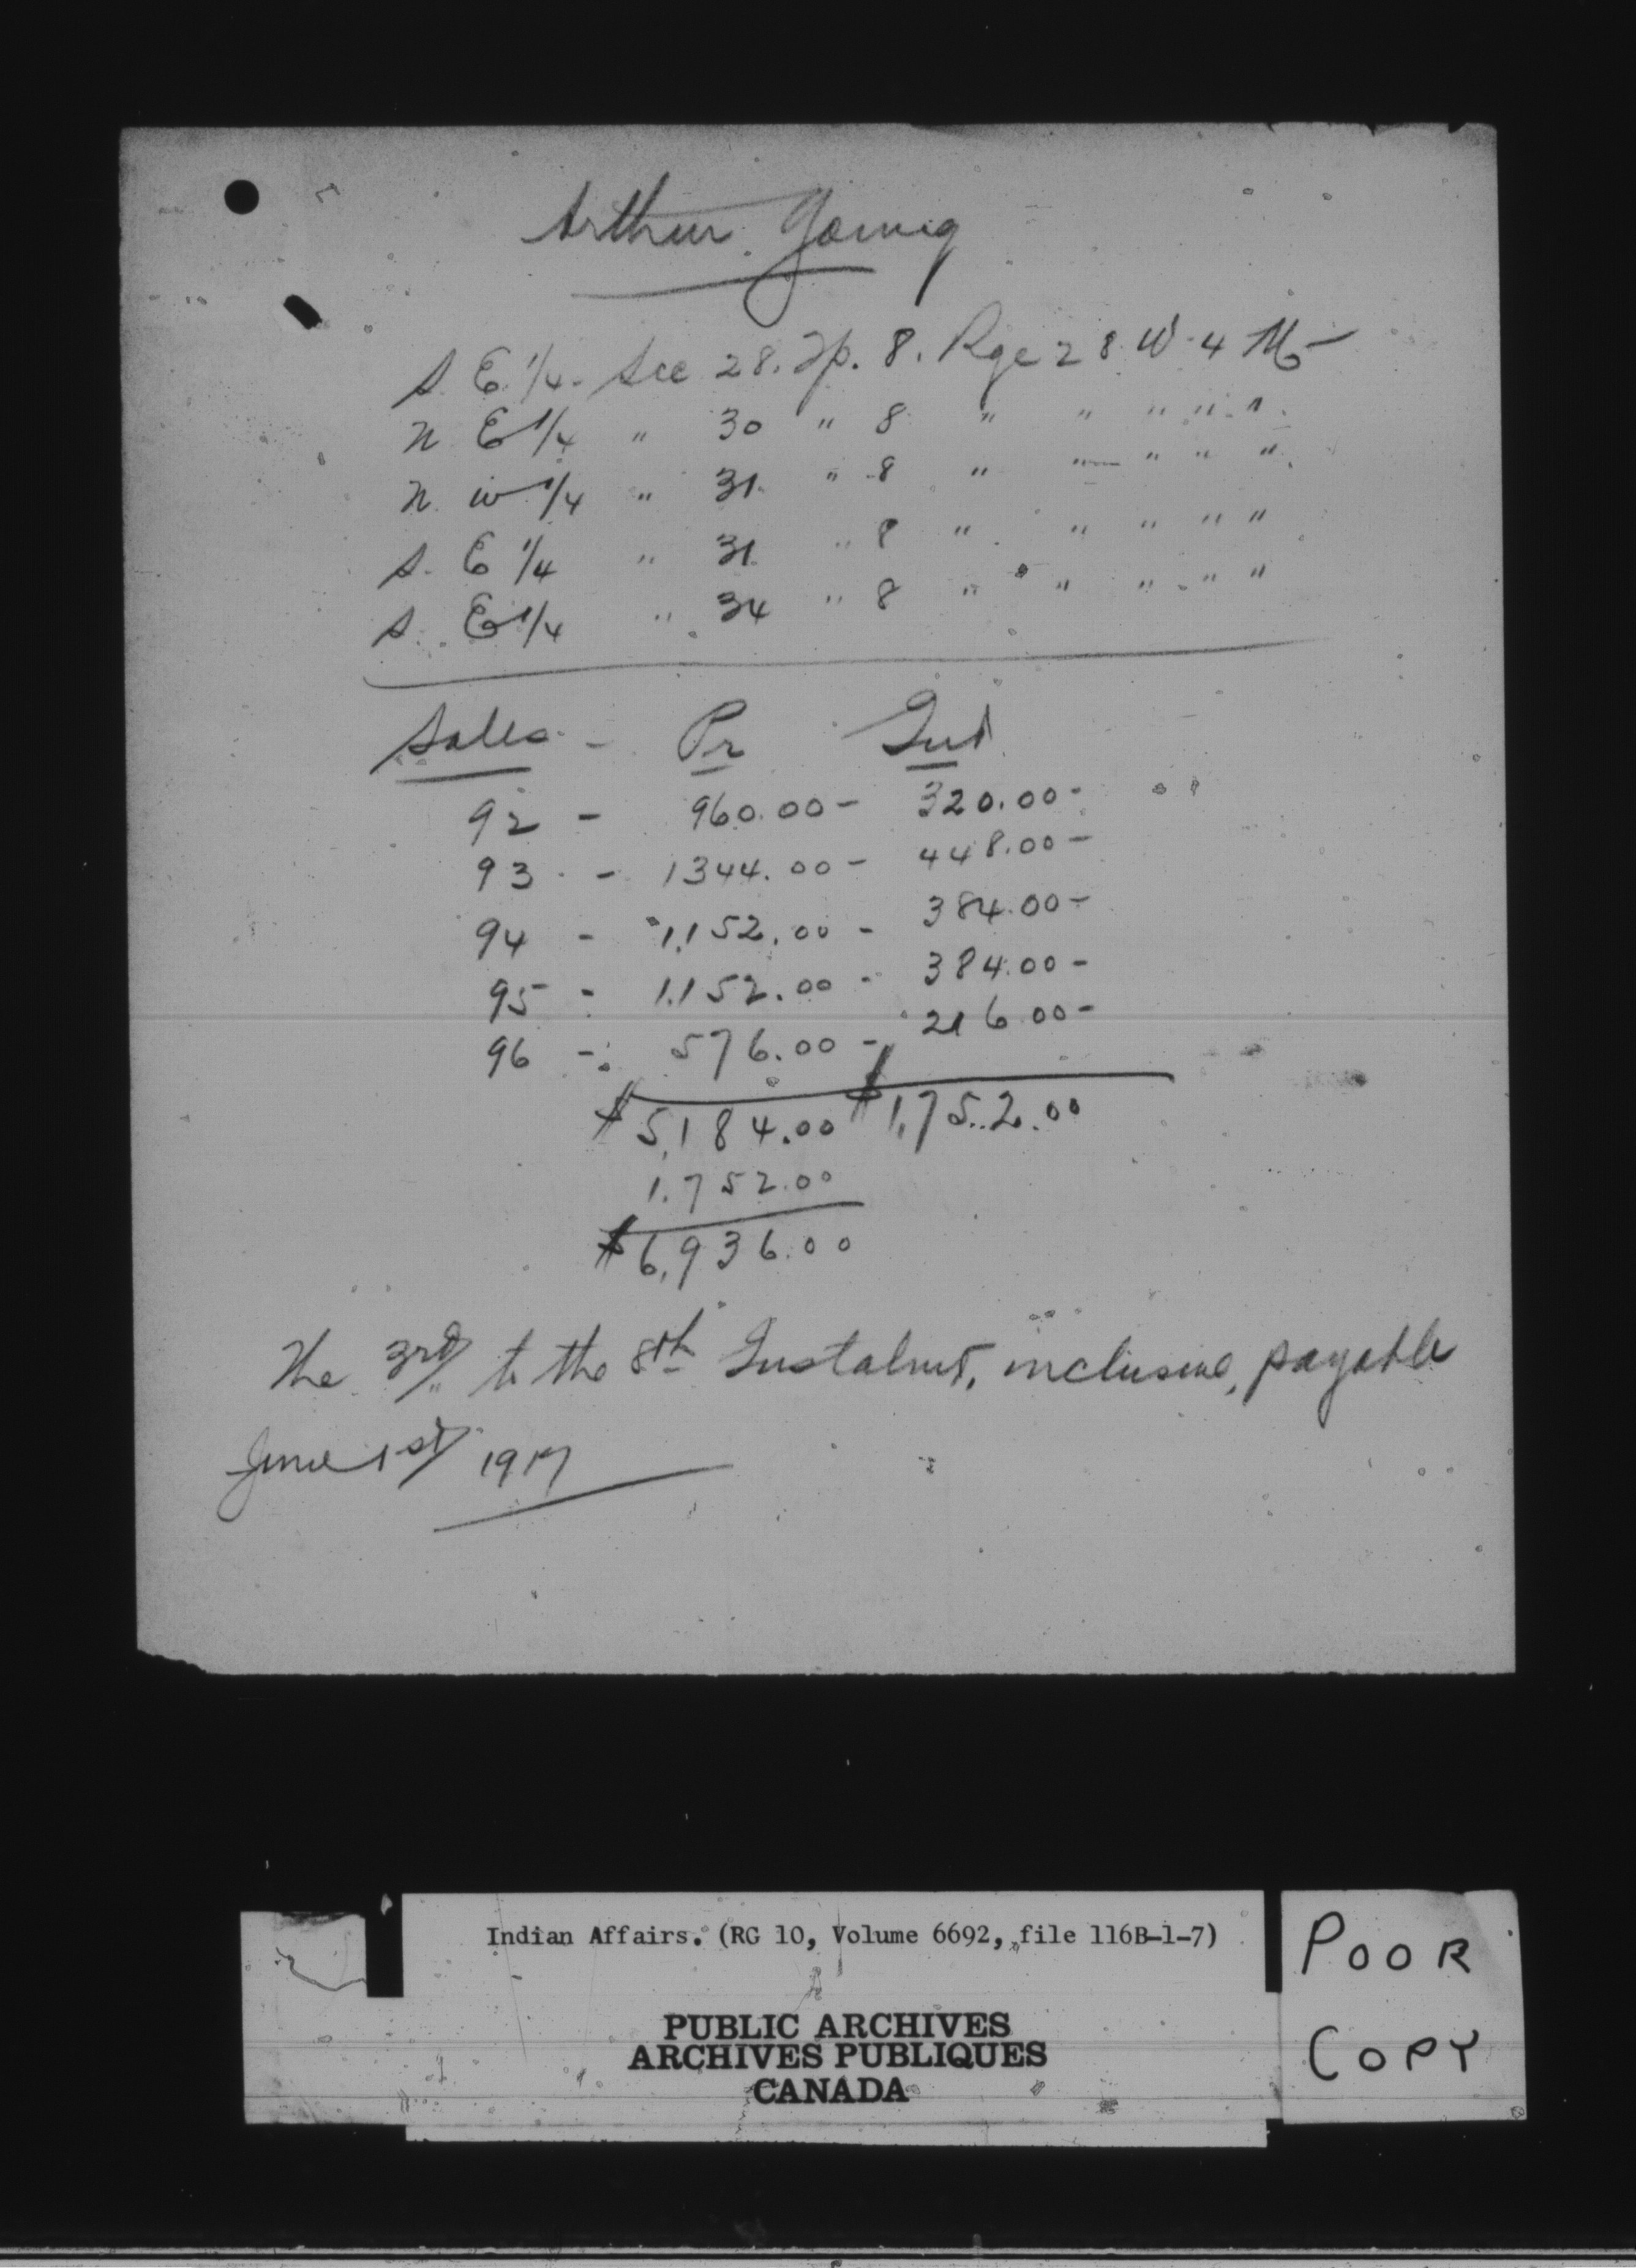 Arthur Young
S. E. 1/4. Sec 28. Tp. 8. Rge 28 W. 4 M
N E 1/4 " 30 " 8 " " " " "
N. W 1/4 " 31. " 8 " " " " "
S. E 1/4 " 31. " 8 " " " " "
S. E 1/4 " 34 " 8 " " " " "
Sales - Pr Int
92 - 960.00 - 320.00 -
93 - 1344.00 - 448.00 -
94 - 1,152.00 - 384.00 -
95 - 1,152.00 - 384.00 -
96 - 576.00 - 216.00 -
$5,184.00 $1,752.00
1,752.00
$6,936.00
The 3rd to the 8th Instalmt, inclusive, payable
June 1st 1917
Indian Affairs. (RG 10, Volume 6692, file 116B-1-7)
PUBLIC ARCHIVES
ARCHIVES PUBLIQUES
CANADA
POOR
COPY